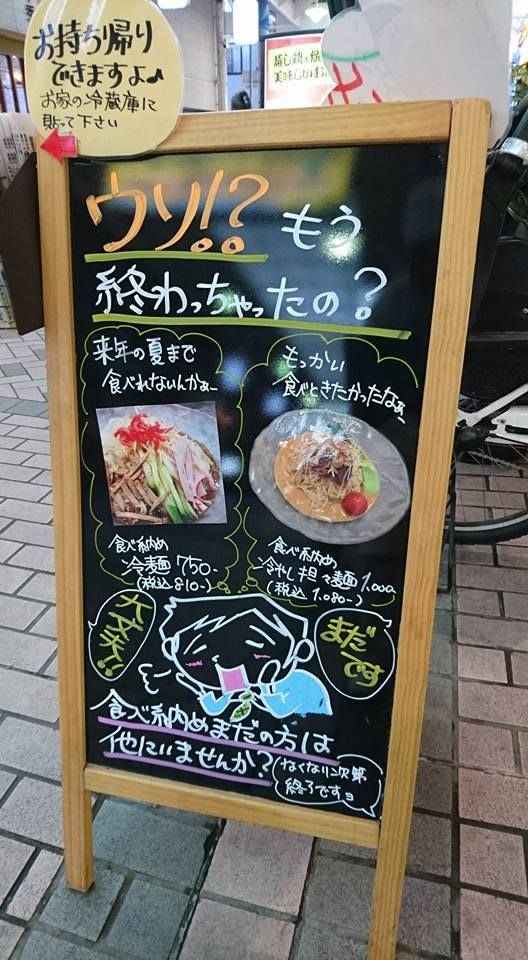 お持ち帰り
できますよ♪
お家の冷蔵庫に
貼って下さい
蒸し鶏と焼
美味しいお
ウソ!?もう
終わっちゃったの?
来年の夏まで
食べれないんかぁー
もっかい
食べときたかったなぁ〜
食べ納め
冷麺 750-
(税込810-)
食べ納め
冷やし担々麺 1.000-
(税込 1.080-)
大丈夫!!
まだです
食べ納めまだの方は
他にいませんか?
なくなり次第
終了ですョ